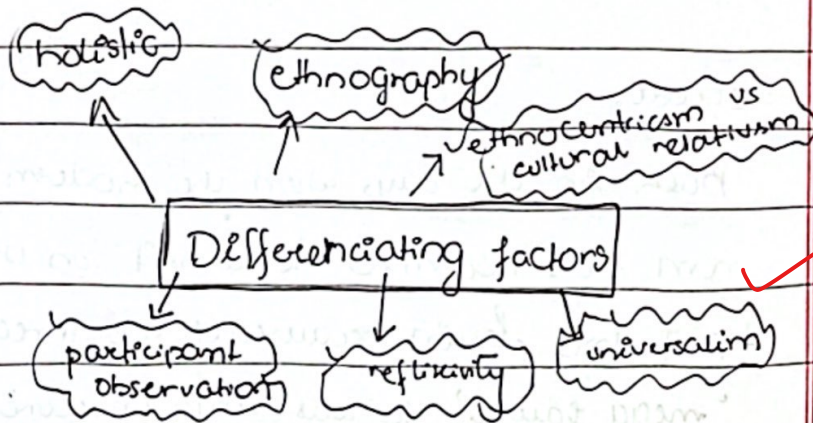 holistic
ethnography
ethnocentricsm vs
cultural relativism
Differenciating factors
participant
observation
reflixivity
universalim